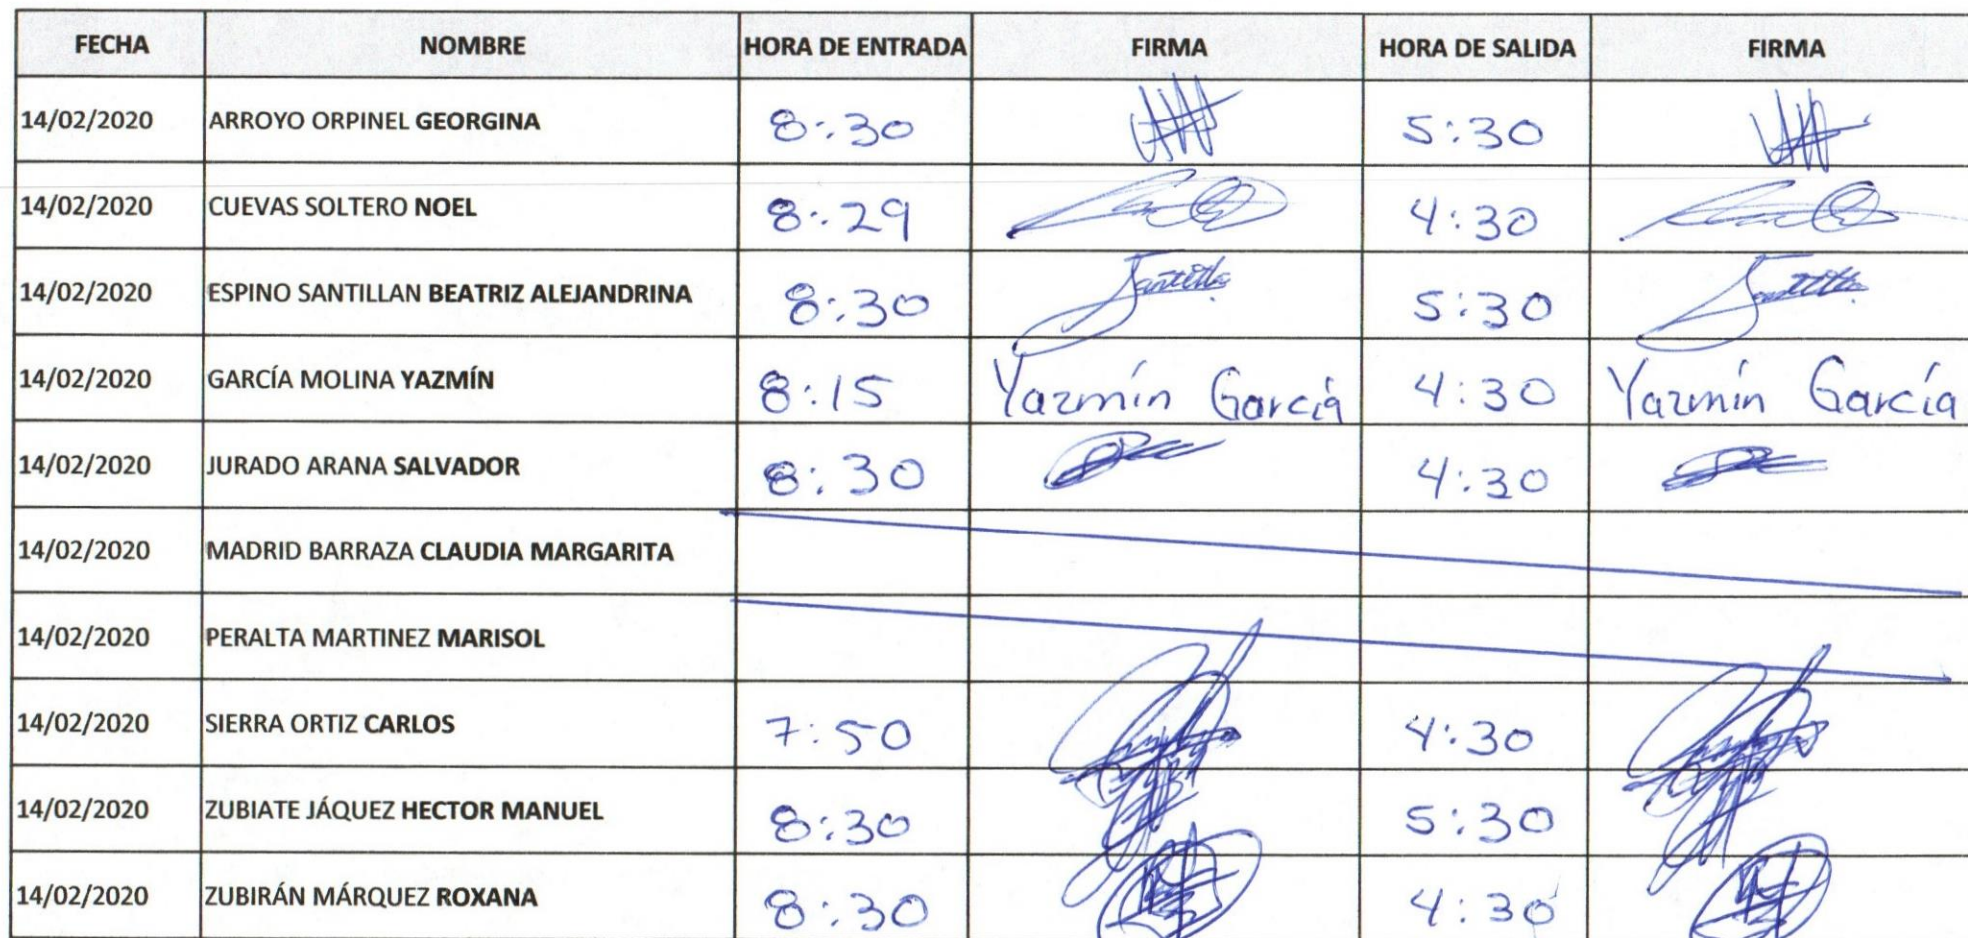 FECHA NOMBRE HORA DE ENTRADA FIRMA HORA DE SALIDA FIRMA
14/02/2020 ARROYO ORPINEL GEORGINA 8:30 5:30
14/02/2020 CUEVAS SOLTERO NOEL 8:29 4:30
14/02/2020 ESPINO SANTILLAN BEATRIZ ALEJANDRINA 8:30 5:30
14/02/2020 GARCÍA MOLINA YAZMÍN 8:15 Yazmín García 4:30 Yazmín García
14/02/2020 JURADO ARANA SALVADOR 8:30 4:30
14/02/2020 MADRID BARRAZA CLAUDIA MARGARITA
14/02/2020 PERALTA MARTINEZ MARISOL
14/02/2020 SIERRA ORTIZ CARLOS 7:50 4:30
14/02/2020 ZUBIATE JÁQUEZ HECTOR MANUEL 8:30 5:30
14/02/2020 ZUBIRÁN MÁRQUEZ ROXANA 8:30 4:30